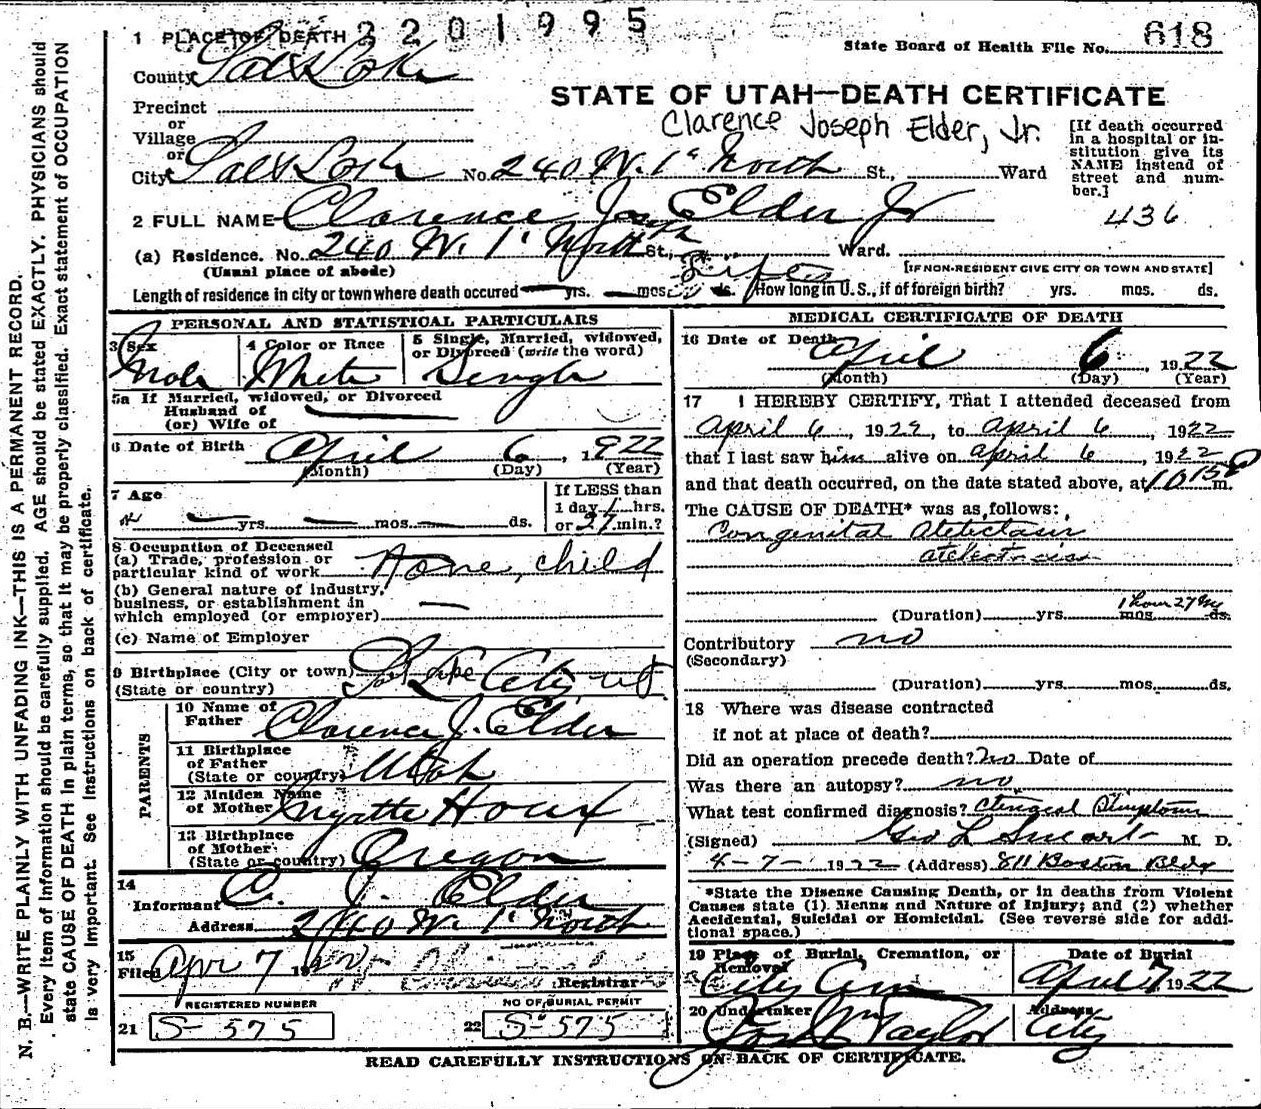 2201995
1 PLACE OF DEATH
State Board of Health File No. 618
County Salt Lake
STATE OF UTAH—DEATH CERTIFICATE
Precinct
or
Village
or
Clarence Joseph Elder, Jr.
[If death occurred in a hospital or institution give its NAME instead of street and number.]
City Salt Lake No. 240 W. 1st North St., Ward
436
2 FULL NAME Clarence Jos Elder Jr
(a) Residence. No. 240 W. 1st North St., Ward.
(Usual place of abode)
[IF NON-RESIDENT GIVE CITY OR TOWN AND STATE]
Length of residence in city or town where death occured yrs. mos. ds. How long in U. S., if of foreign birth? yrs. mos. ds.
PERSONAL AND STATISTICAL PARTICULARS
3 Sex
Male
4 Color or Race
White
5 Single, Married, widowed, or Divorced (write the word)
Single
5a If Married, widowed, or Divorced
Husband of
(or) Wife of
6 Date of Birth April 6, 1922
(Month) (Day) (Year)
7 Age
yrs. mos. ds.
If LESS than
1 day 1 hrs.
or 27 min.?
8 Occupation of Deceased
(a) Trade, profession or
particular kind of work None, child
(b) General nature of industry,
business, or establishment in
which employed (or employer)
(c) Name of Employer
9 Birthplace (City or town) Salt Lake City, ut
(State or country)
PARENTS
10 Name of
Father Clarence J. Elder
11 Birthplace
of Father
(State or country) Utah
12 Maiden Name
of Mother Myrtle Houx
13 Birthplace
of Mother
(State or country) Oregon
14
Informant C. J. Elder
Address 240 W. 1st North
15
Filed Apr 7 1922
Registrar
REGISTERED NUMBER
21 S-575
NO OF BURIAL PERMIT
22 S-575
MEDICAL CERTIFICATE OF DEATH
16 Date of Death
April 6, 1922
(Month) (Day) (Year)
17 I HEREBY CERTIFY, That I attended deceased from
April 6, 1922, to April 6, 1922
that I last saw him alive on April 6, 1922
and that death occurred, on the date stated above, at 10 15 P m.
The CAUSE OF DEATH* was as follows:
Congenital Atelectasis
atelectasis
1 hour 27 M
(Duration) yrs. mos. ds.
Contributory no
(Secondary)
(Duration) yrs. mos. ds.
18 Where was disease contracted
if not at place of death?
Did an operation precede death? no Date of
Was there an autopsy? no
What test confirmed diagnosis? Clinical Symptoms
(Signed) Geo L Smart M. D.
4-7-1922 (Address) 811 Boston Bldg
*State the Disease Causing Death, or in deaths from Violent
Causes state (1) Menns and Nature of Injury; and (2) whether
Accidental, Suicidal or Homicidal. (See reverse side for addi-
tional space.)
19 Place of Burial, Cremation, or
Removal
City Cem
Date of Burial
April 7 1922
20 Undertaker
Jos Wm Taylor
Address
City
READ CAREFULLY INSTRUCTIONS ON BACK OF CERTIFICATE.
N. B.—WRITE PLAINLY WITH UNFADING INK—THIS IS A PERMANENT RECORD.
Every item of information should be carefully supplied. AGE should be stated EXACTLY. PHYSICIANS should
state CAUSE OF DEATH in plain terms, so that it may be properly classified. Exact statement of OCCUPATION
is very important. See instructions on back of certificate.